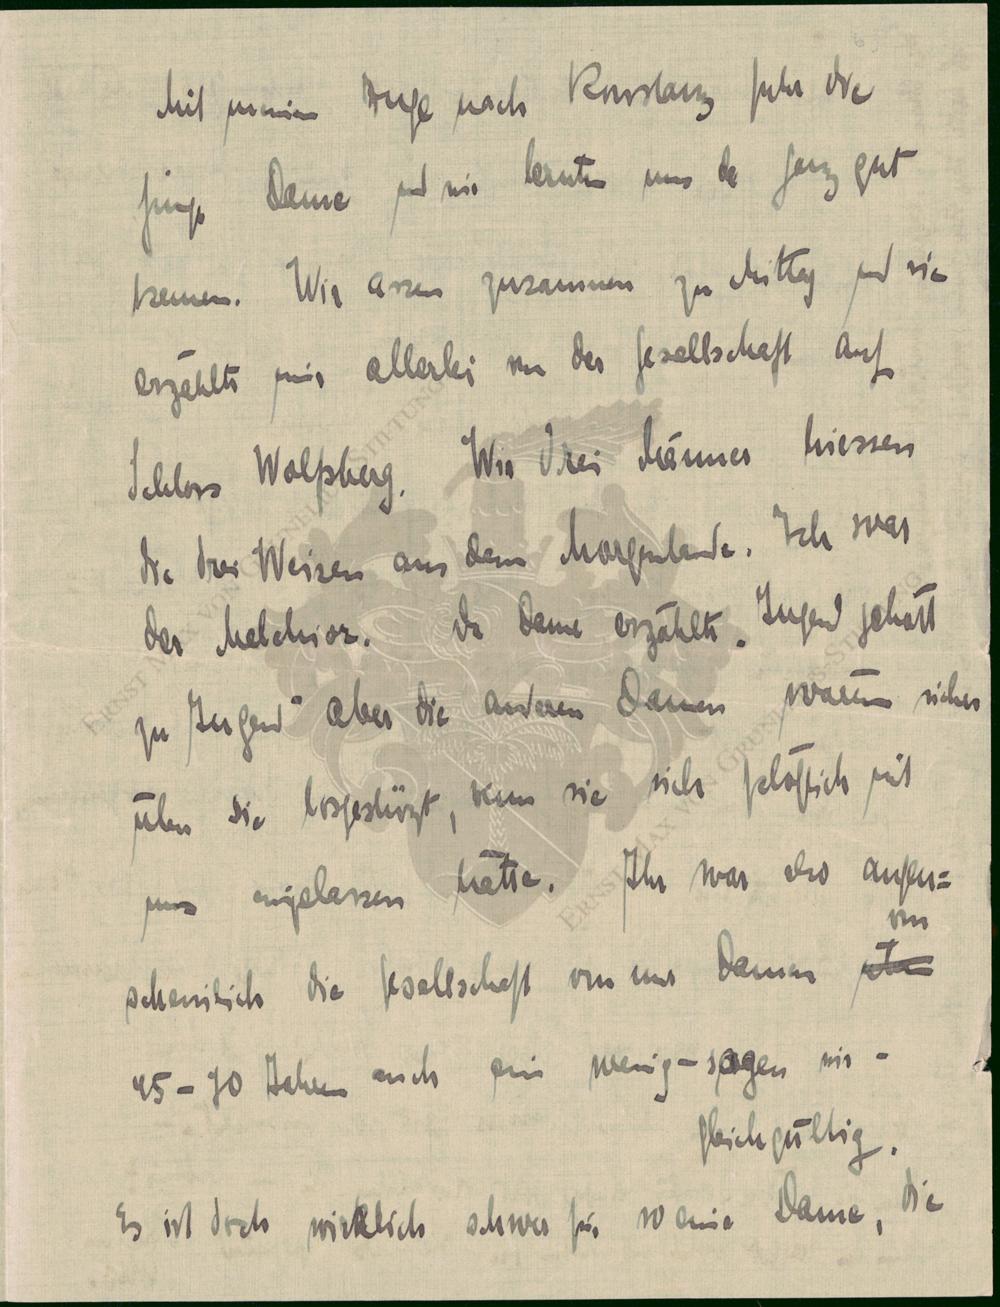 Mit meinem Zuge nach Konstanz fuhr die
junge Dame und wir lernten uns da ganz gut
kennen. Wir assen zusammen zu Mittag und sie
erzählte mir allerlei von der Gesellschaft auf
Schloss Wolfsberg. Wir drei Männer hiessen
die drei Weisen aus dem Morgenlande. Ich war
der Melchior. Die Dame erzählte. Jugend gehört
zu Jugend" aber die anderen Damen wären sicher
über sie losgestürzt, wenn sie sich plötzlich mit
uns eingelassen hätte. Ihr war also augen=
scheinlich die Gesellschaft von nur Damen von
45-70 Jahren auch ein wenig - sagen wir -
gleichgültig.
Es ist doch wirklich schwer für so eine Dame, die
ERNST MAX VON GRUNELIUS-STIFTUNG
ERNST MAX VON GRUNELIUS-STIFTUNG